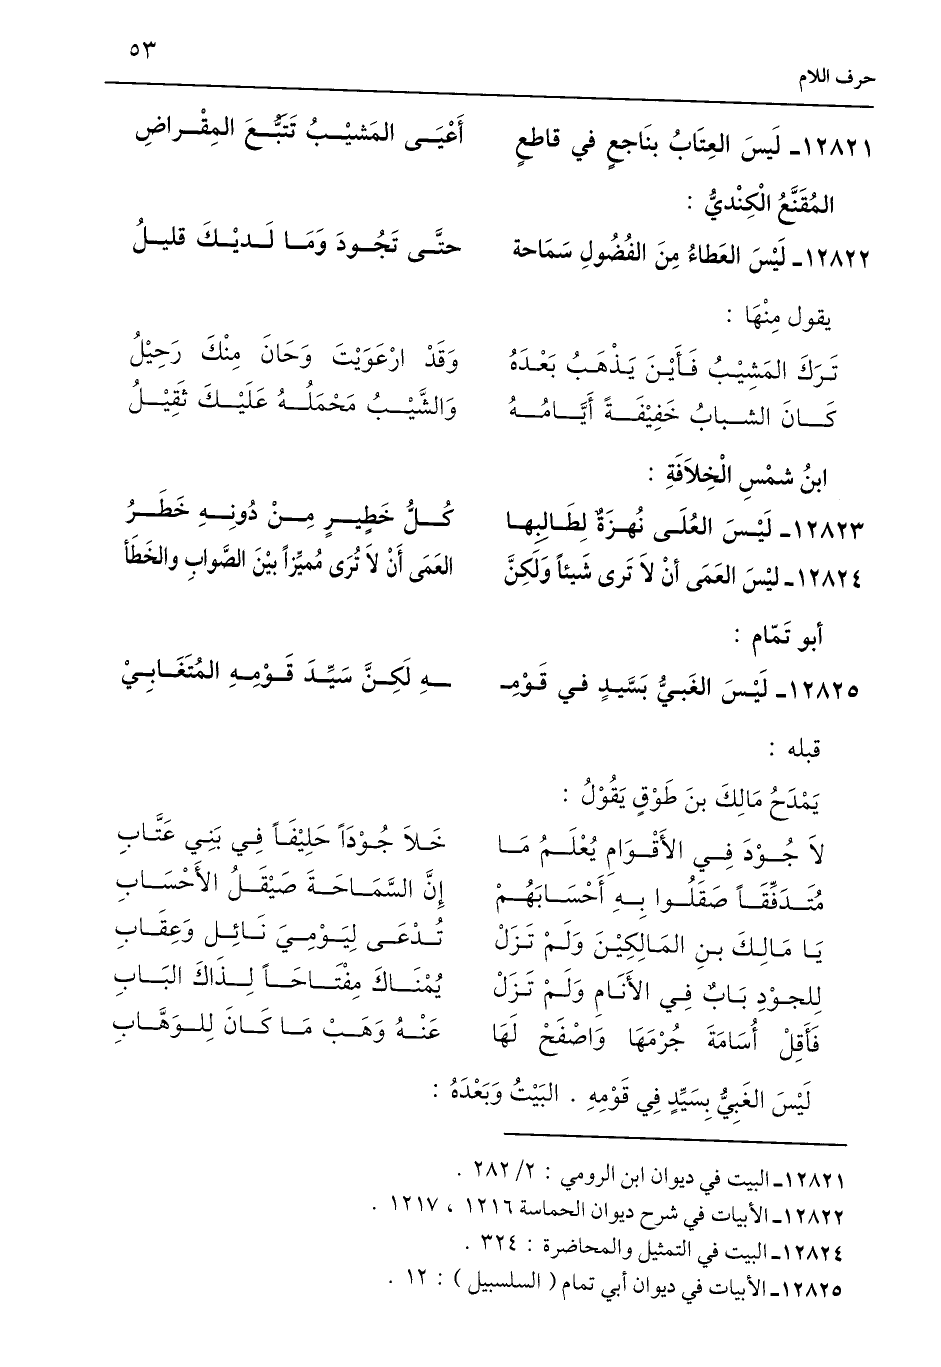 ٥٣
حرف اللام
١٢٨٢١ـ لَيسَ العِتَابُ بنَاجعٍ في قاطعٍ أَعْيَـى المَشيْـبُ تَتَبُّـعَ المِقْـراضِ
المُقَنَّعُ الْكِنْديُّ :
١٢٨٢٢ـ لَيْسَ العَطاءُ مِنَ الفُضُولِ سَمَاحة حتَّـى تَجُـودَ وَمَـا لَـديْـكَ قليـلُ
يقول مِنْهَا :
تَـرَكَ المَشِيْـبُ فَـأَيْـنَ يَـذْهَـبُ بَعْـدَهُ وَقَدْ ارْعَوَيْتَ وَحَانَ مِنْكَ رَحِيْلُ
كَـانَ الشـبابُ خَفِيْفَـةً أَيَّـامُـهُ وَالشَّيْـبُ مَحْمَلُـهُ عَلَيْـكَ ثَقِيْـلُ
ابنُ شمْسِ الْخِلاَفَةِ :
١٢٨٢٣ـ لَيْسَ العُلَى نُهـزَةٌ لِطَالِبِهـا كُـلُّ خَطِيـرٍ مِـنْ دُونِـهِ خَطَـرُ
١٢٨٢٤ـ ليْسَ العَمَى أنْ لاَ تَرى شَيئاً وَلَكِنَّ العَمَى أَنْ لاَ تُرَى مُميِّزاً بيْنَ الصَّوابِ والخَطَأْ
أبو تَمّام :
١٢٨٢٥ـ لَيْـسَ الغَبيُّ بسَّيدٍ فـي قَـوْمِـ ـهِ لَكِـنَّ سَيِّـدَ قَـوْمِـهِ المُتَغَـابِـيْ
قبله :
يَمْدَحُ مَالِكَ بنَ طَوْقٍ يَقُوْلُ :
لاَ جُـوْدَ فِـي الأَقْـوَامِ يُعْلَـمُ مَـا خَـلاَ جُـوْدَاً حَلِيْفَـاً فِـي بَنِي عَتَّـابِ
مُتَـدَفِّقَـاً صَقَلُـوا بِـهِ أَحْسَـابَهُـمْ إِنَّ السَّمَـاحَـةَ صَيْقَـلُ الأَحْسَـابِ
يَـا مَـالِـكَ بـنِ المَـالِكِيْـنَ وَلَـمْ تَـزَلْ تُـدْعَـى لِيَـوْمِـيَ نَـائِـلٍ وَعِقَـابِ
لِلجـوْدِ بَـابٌ فِـي الأَنَـامِ وَلَـمْ تَـزَلْ يُمْنَـاكَ مِفْتَـاحَـاً لِـذَاكَ البَـابِ
فَأَقِلْ أُسَامَةَ جُرْمَهَا وَاصْفَحْ لَهَا عَنْـهُ وَهَـبْ مَـا كَـانَ لِلـوَهَّـابِ
لَيْسَ الغَبِيُّ بِسَيِّدٍ فِي قَوْمِهِ . البَيْتُ وَبَعْدَهُ :
١٢٨٢١ـ البيت في ديوان ابن الرومي : ٢/ ٢٨٢ .
١٢٨٢٢ـ الأبيات في شرح ديوان الحماسة ١٢١٦ ، ١٢١٧ .
١٢٨٢٤ـ البيت في التمثيل والمحاضرة : ٣٢٤ .
١٢٨٢٥ـ الأبيات في ديوان أبي تمام ( السلسبيل ) : ١٢ .